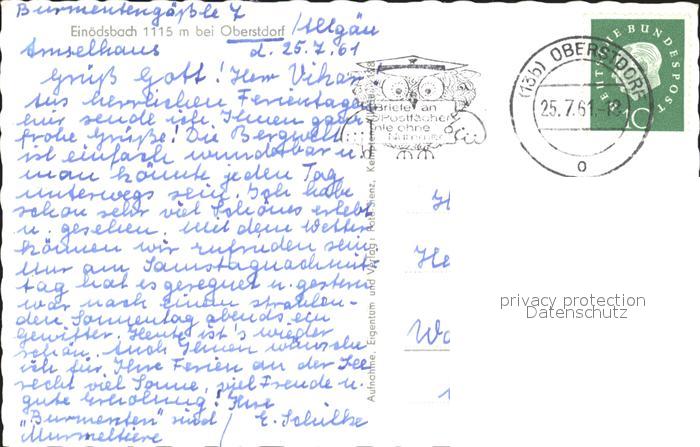 Burmentengäßle 7
Einödsbach 1115 m bei Oberstdorf /Allgäu
Amselhaus d. 25.7.61
Grüß Gott! Herr Vikar
Aus herrlichen Ferientagen
hier sende ich Ihnen ganz
frohe Grüße! Die Bergwelt
ist einfach wunderbar u.
man könnte jeden Tag
unterwegs sein. Ich habe
schon sehr viel Schönes erlebt
u. gesehen. Mit dem Wetter
können wir zufrieden sein
Nur am Samstagnachmit-
tag hat es geregnet u. gestern
war nach einem strahlen-
den Sonnentag abends ein
Gewitter. Heute ist's wieder
schön. Auch Ihnen wünsche
ich für Ihre Ferien an der See
recht viel Sonne, viel Freude u.
gute Erholung! Ihre
"Burmenten" sind / E. Schülke
Murmeltiere
Aufnahme, Eigentum und Verlag:
Briefe an
Postfächer
ohne
(13b) OBERSTDORF
25.7.61
DEUTSCHE BUNDESPOST
10
He
privacy protection
Datenschutz